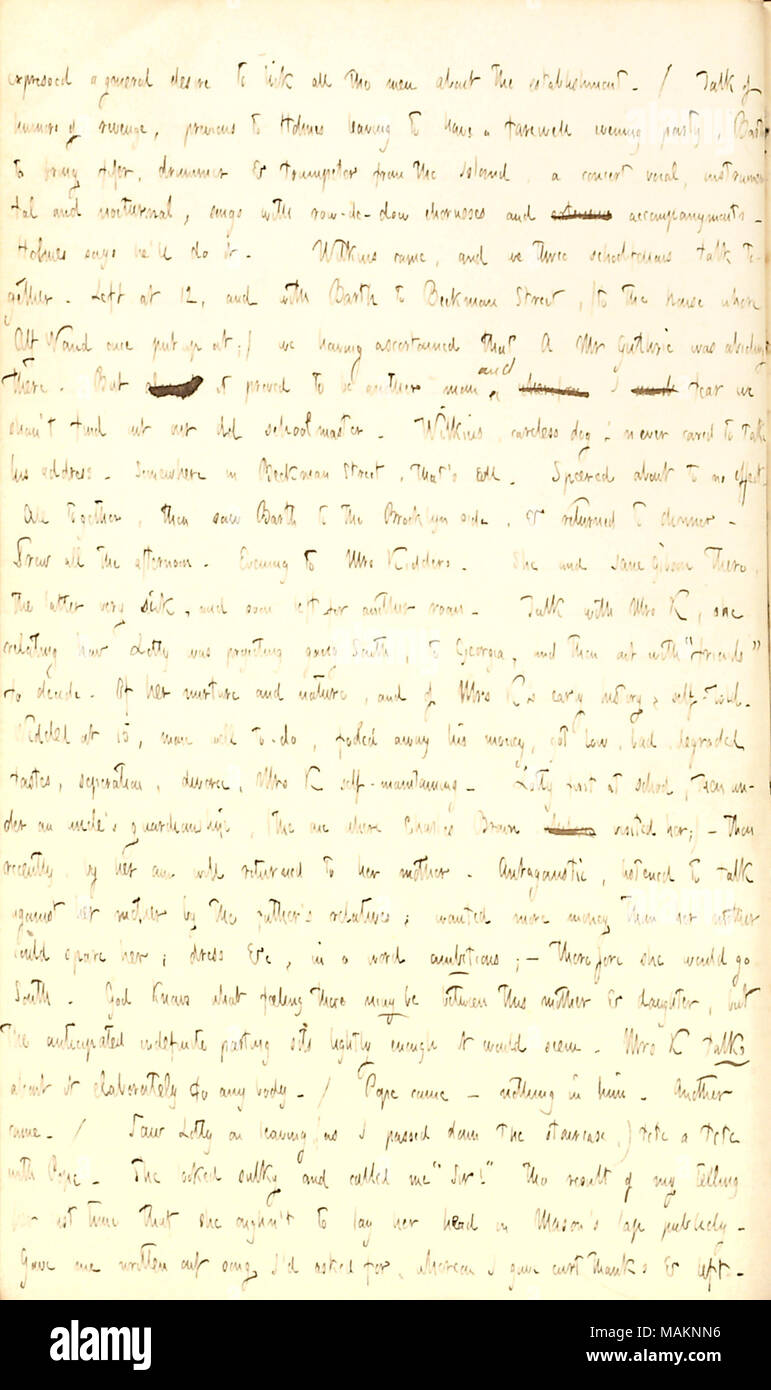 expressed a general desire to lick all the men about the establishment. / Talk of
humors of revenge, previous to Holmes leaving to have a farewell evening party, Barth
to bring fifer, drummer & trumpeter from the Island, a concert vocal, instrumen-
tal and nocturnal, songs with row-de-dow chorusses and accompanyments.
Holmes says he'll do it. Wilkins came, and we three schoolfellows talk to-
gether. Left at 12, and with Barth to Beekman Street, (to the house where
Alf Waud once put up at;) we having ascertained that A Mr Guthrie was abiding
there. But it proved to be another man and I fear we
shan't find out our old schoolmaster. Wilkins, careless dog! never cared to take
his address. Somewhere in Beekman Street, that's all. Speered about to no effect
All together, then saw Barth to the Brooklyn side, & returned to dinner.
Drew all the afternoon. Evening to Mrs Kidders. She and Jane Gibson there,
the latter very sick, and soon left for another room. Talk with Mrs K, she
relating how Lotty was projecting going South, to Georgia, and then act with "friends"
to decide. Of her nurture and nature, and of Mrs Ks early history, self-told.
Wedded at 15, man well to-do, fooled away his money, got low, bad degraded
tastes, seperation, divorce, Mrs K self-maintaining. Lotty first at school, then un-
der an uncle's guardianship, (the one where Charles Brown visited her;) - then
recently, by her own will returned to her mother. Antagonistic, listened to talk
against her mother by the father's relatives; wanted more money than her mother
could spare her; dress &c, in a word ambitious; - therefore she would go
South. God knows what feeling there may be between this mother & daughter, but
the anticipated indefinite parting sits lightly enough it would seem. Mrs K talks
about it elaborately to any body. / Pope came - nothing in him. Another
came. / Saw Lotty on leaving (as I passed down the staircase,) tete a tete
with Pope. She looked sulky and called me "Sir!" the result of my telling
her last time that she oughn't to lay her head in Mason's lap publicly.
Gave me written out song I'd asked for, whereon I gave curt thanks & left.
alamy
Image ID: MAKNN6
www.alamy.com